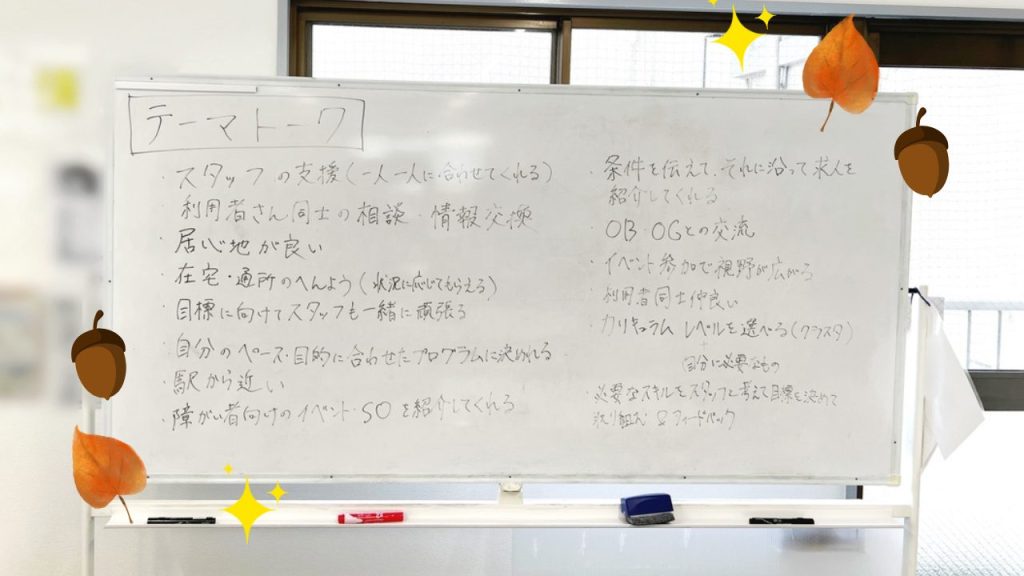 テーマトーク
・スタッフの支援(一人一人に合わせてくれる)
・利用者さん同士の相談・情報交換
・居心地が良い
・在宅・通所のへんよう(状況に応じてもらえる)
・目標に向けてスタッフも一緒に頑張る
・自分のペース・目的に合わせたプログラムに決めれる
・駅から近い
・障がい者向けのイベント・SOを紹介してくれる
・条件を伝えて、それに沿って求人を
紹介してくれる
・OB・OGとの交流
・イベント参加で視野が広がる
・利用者同士仲良い
・カリキュラム レベルを選べる(クラスタ)
自分に必要なもの
・必要なスキルをスタッフと考えて目標を決めて
取り組む & フィードバック